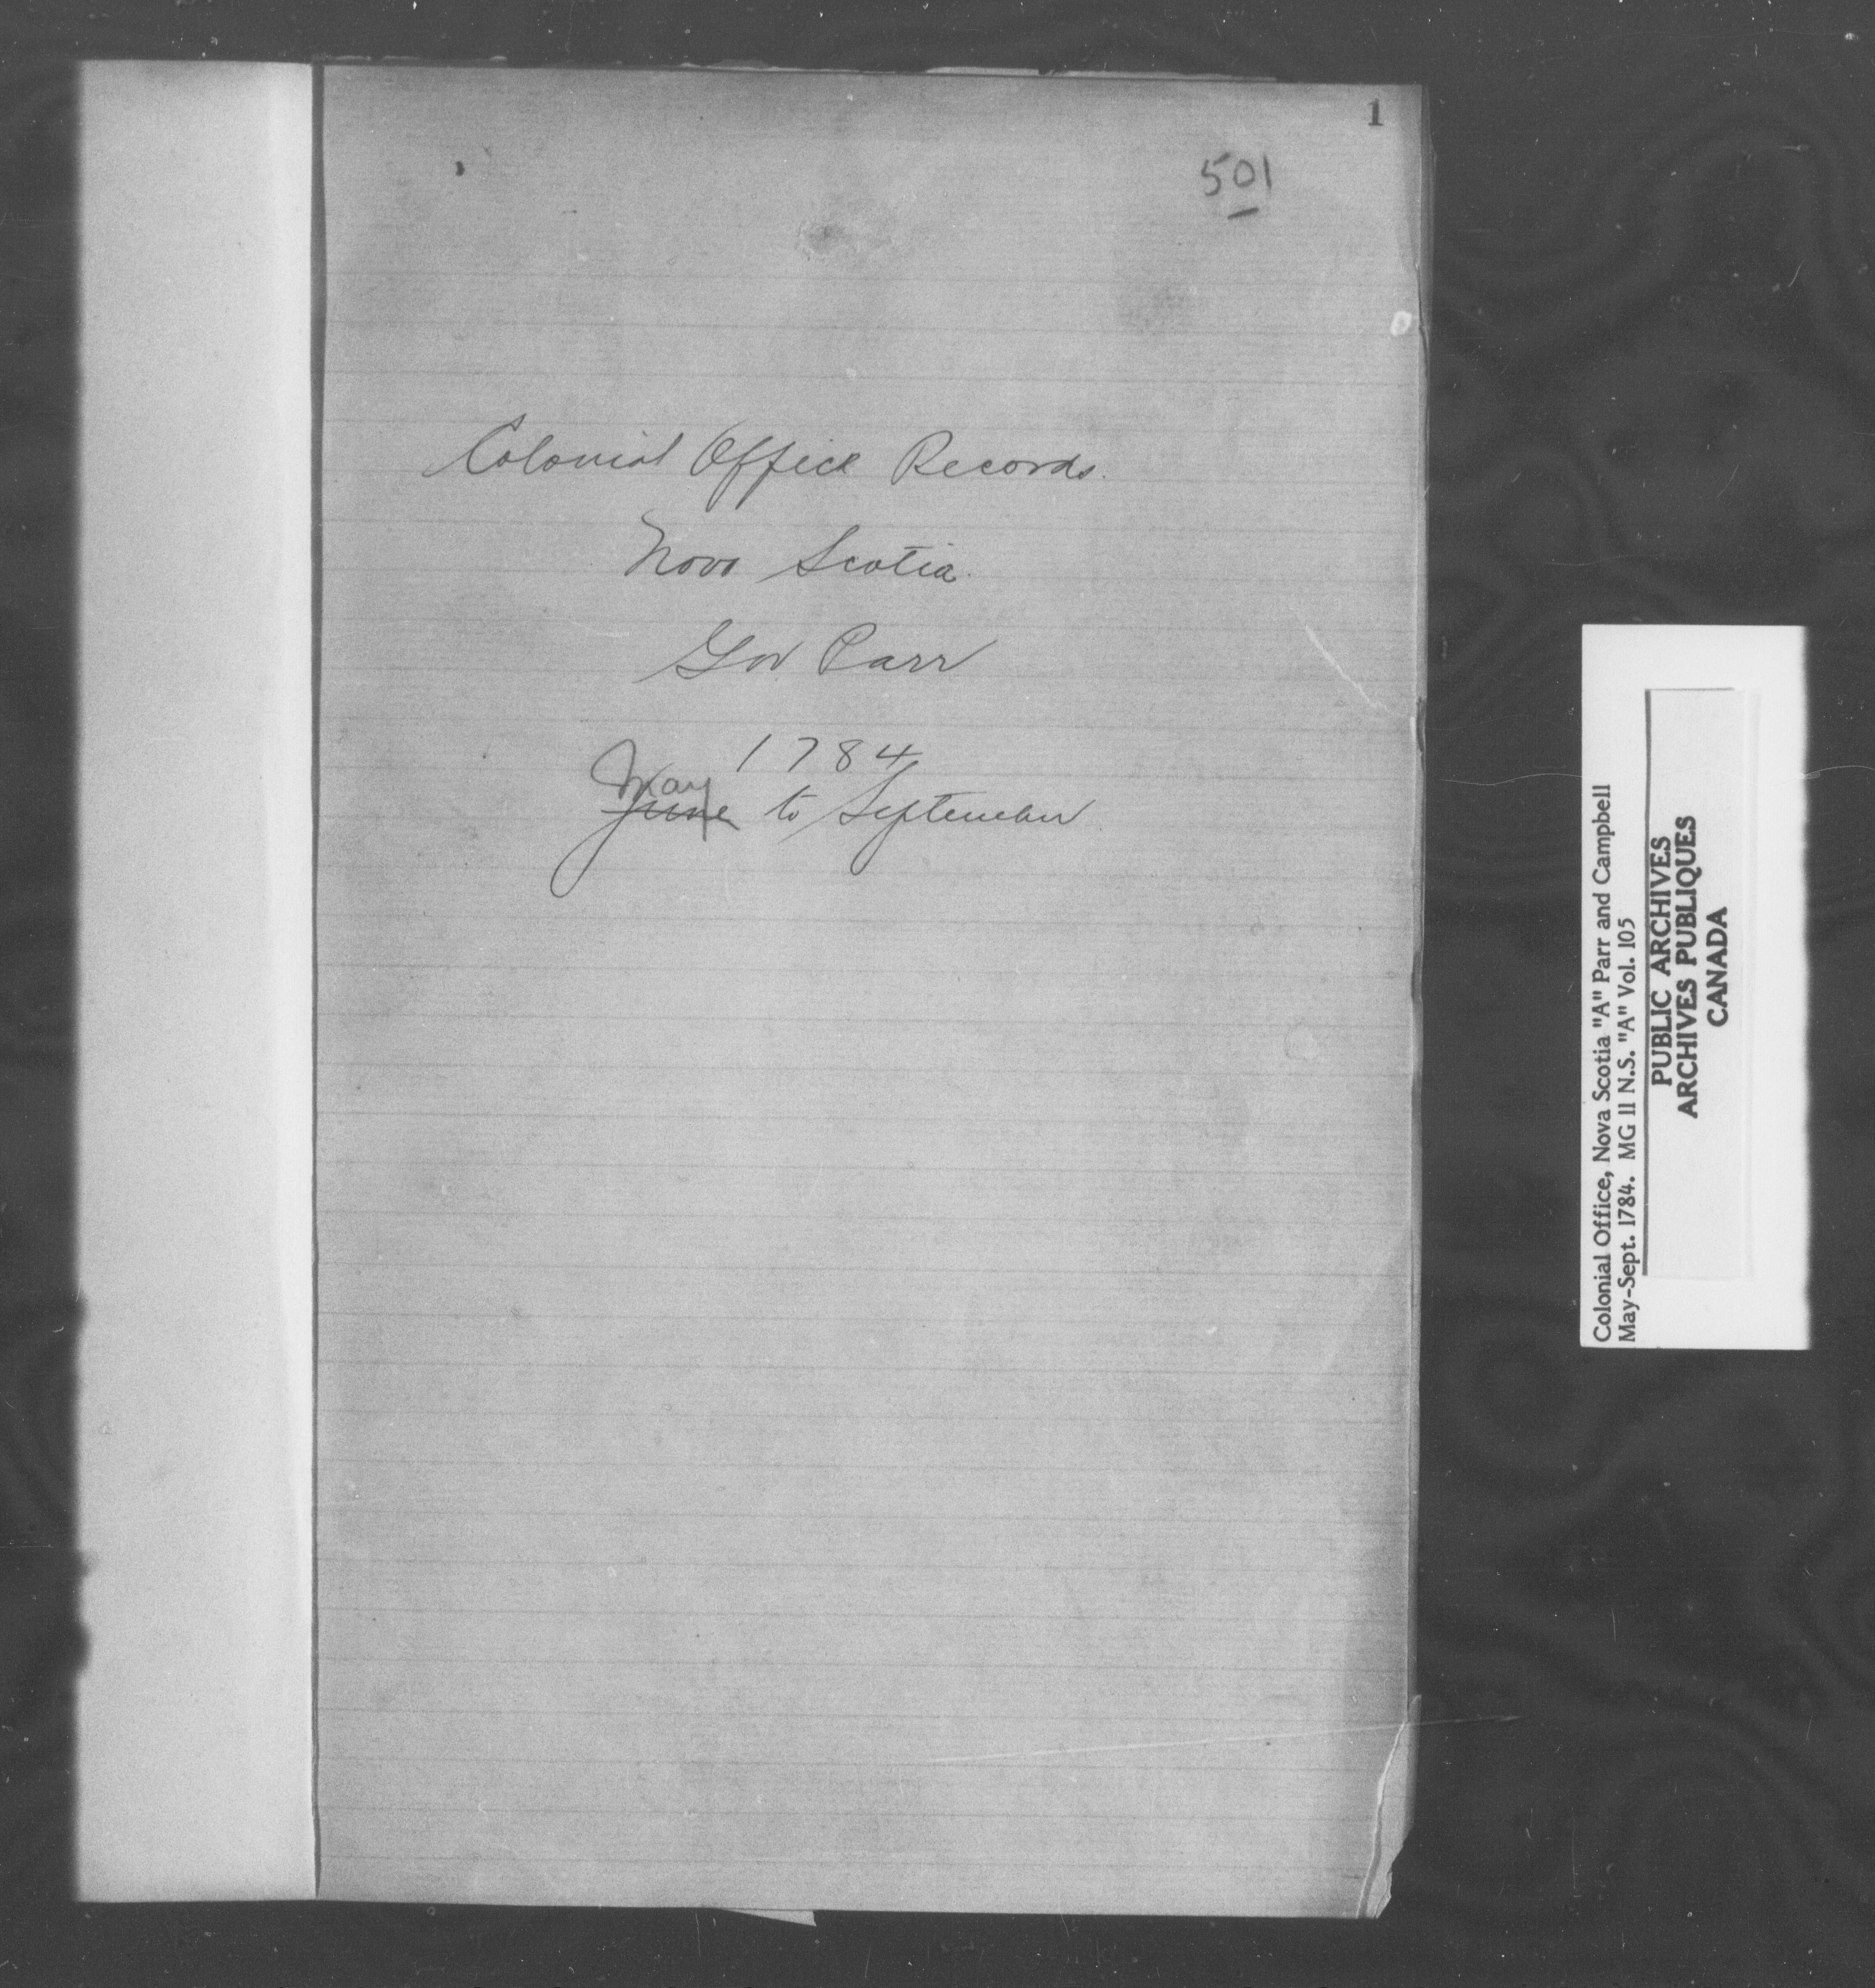 1
501
Colonial Office Records.
Nova Scotia.
Gov Parr
1784
May
June to September
Colonial Office, Nova Scotia "A" Parr and Campbell
May-Sept. 1784. MG 11 N.S. "A" Vol. 105
PUBLIC ARCHIVES
ARCHIVES PUBLIQUES
CANADA